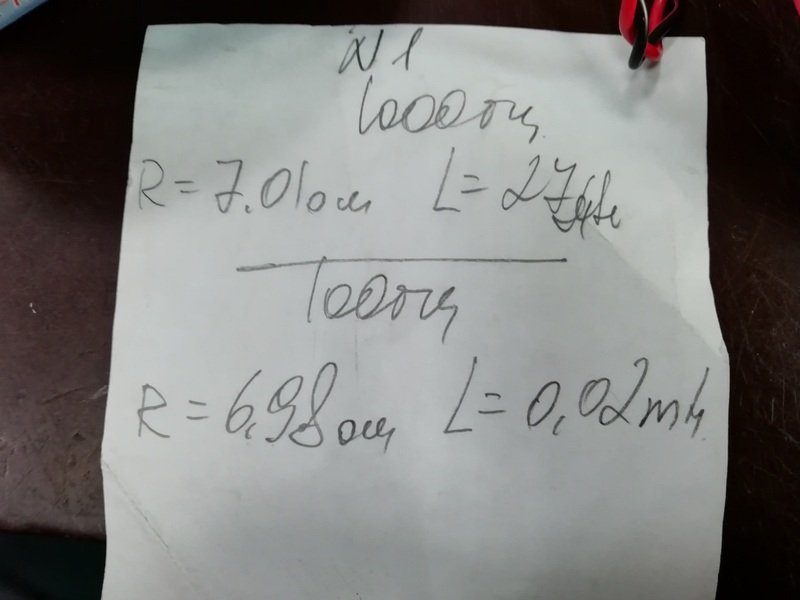 №1
1000гц
R=7.01ом L=27
100гц
R=6,98ом L=0,02mH